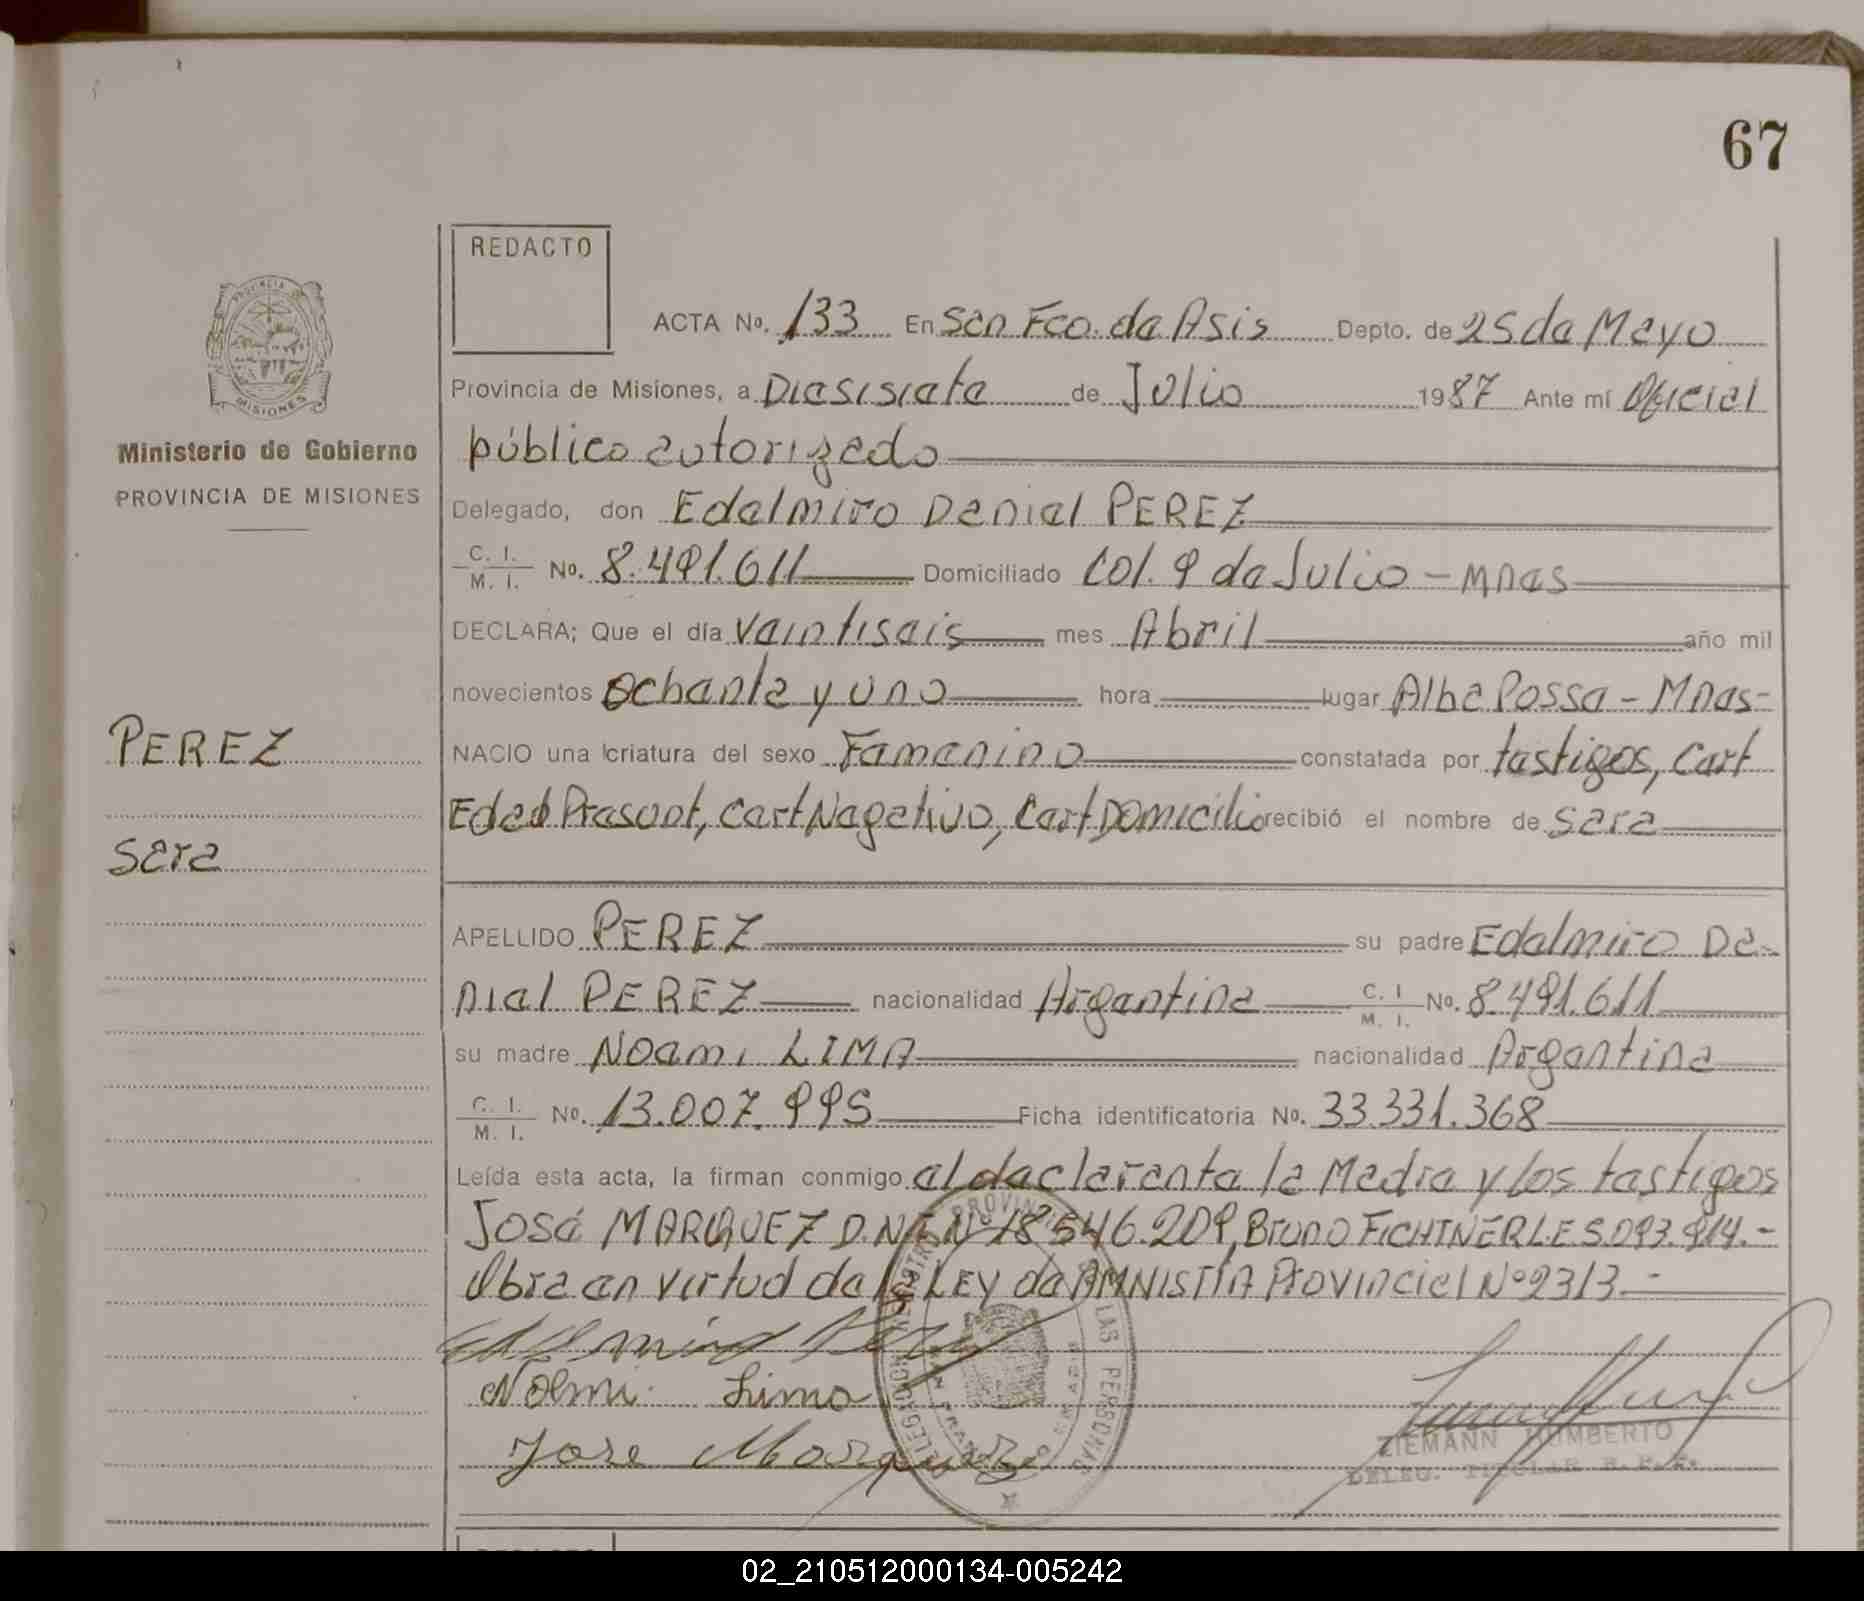 67
REDACTO
ACTA No. 133 En San Fco. de Asis Depto. de 25 de Mayo
Provincia de Misiones, a Diesisiete de Julio 1987 Ante mí Oficial
público autorizado
Ministerio de Gobierno
PROVINCIA DE MISIONES
Delegado, don Edelmiro Daniel PEREZ
C. I. M. I. No. 8.491.611 Domiciliado Col. 9 de Julio - Mnes
DECLARA; Que el día veintiseis mes Abril año mil
novecientos ochenta y uno hora lugar Alba Possa - Mnes-
PEREZ
NACIO una criatura del sexo Femenino constatada por testigos, Cert
Edad Presunt, Cert Negativo, Cert Domicilio recibió el nombre de Sara
Sara
APELLIDO PEREZ su padre Edelmiro Da-
niel PEREZ nacionalidad Argentina C. I M. I. No. 8.491.611
su madre Noemi LIMA nacionalidad Argentina
C. I. M. I. No. 13.007.995 Ficha identificatoria No. 33.331.368
Leída esta acta, la firman conmigo el declarante la Madre y los testigos
José MARQUEZ D.N.I. Nº 18546.209, Bruno FICHTNER L.E 5.093.914.-
Obra en virtud de la LEY de AMNISTIA Provincial Nº 2313.-
Noemi Lima
Jose Marquez
ZIEMANN HUMBERTO
DELEG. TITULAR R. P. P.
02_210512000134-005242